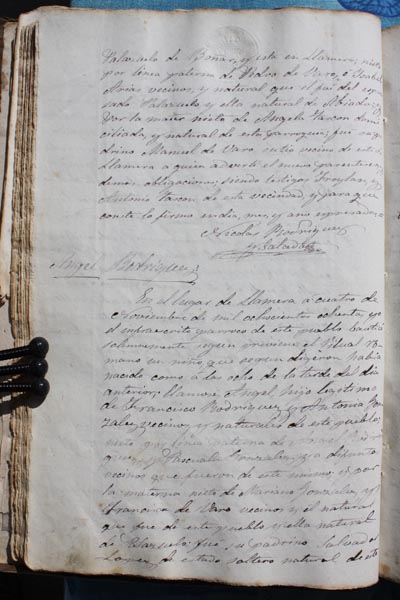 Palazuelo de Boñar, y esta en Llamera; nieto
por linea paterna de Pedro de Varo, é Isabel
Arias vecinos, y natural que el fué del espre
sado Palazuelo y ella natural de Abiados, y
por la mater nieto de Angela Garcon domi
ciliada, y natural de esta parroquia; fue su pa
drino Manuel de Varo su tio vecino de esta de
Llamera a quien adverti el nuevo parentesco, y
demas obligaciones; siendo testigos Froylan, y
Antonio Garcon de esta vecindad, y para que
conste lo firmo en dia, mes, y año espresados
Nicolas Rodriguez
Angel Rodriguez
En el lugar de Llamera á cuatro de
Noviembre de mil ochocientos ochenta, yo
el infraescrito parroco de este pueblo bauticé
solemnemente segun previene el Ritual Ro
mano un niño que segun dijeron habia
nacido como á las ocho de la tarde del dia
anterior; llamose Angel, hijo legitimo
de Francisco Rodriguez, y Antonia Gon
zalez, vecinos, y naturales de este pueblo;
nieto por linea paterna de Rodri
guez, y Pascuala Gonzalez, ya difunta
vecinos que fueron de este mismo, y por
la materna nieto de Mariano Gonzalez, y
Francisca de Varo vecinos y el natural
que fue de este pueblo y ella natural
de Palazuelo; fué su padrino Salvador
Lopez, de estado soltero natural de este